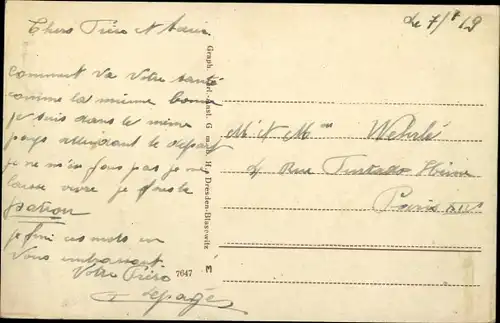 Le 7/1 19
Chers Fréro et Marie
Comment va Votre santé
comme la mienne bonne
je suis dans le même
pays attendant le départ
je ne m'en fous pas je me
laisse vivre je fous le
pation
je fini ces mots en
Vous embrassant
Votre Fréro
Lepage
Graph. Verl.-Anst. G. m. b. H., Dresden-Blasewitz
7647
M. et Mme Wehrlé
4 Rue Furtado Heine
Paris XIV